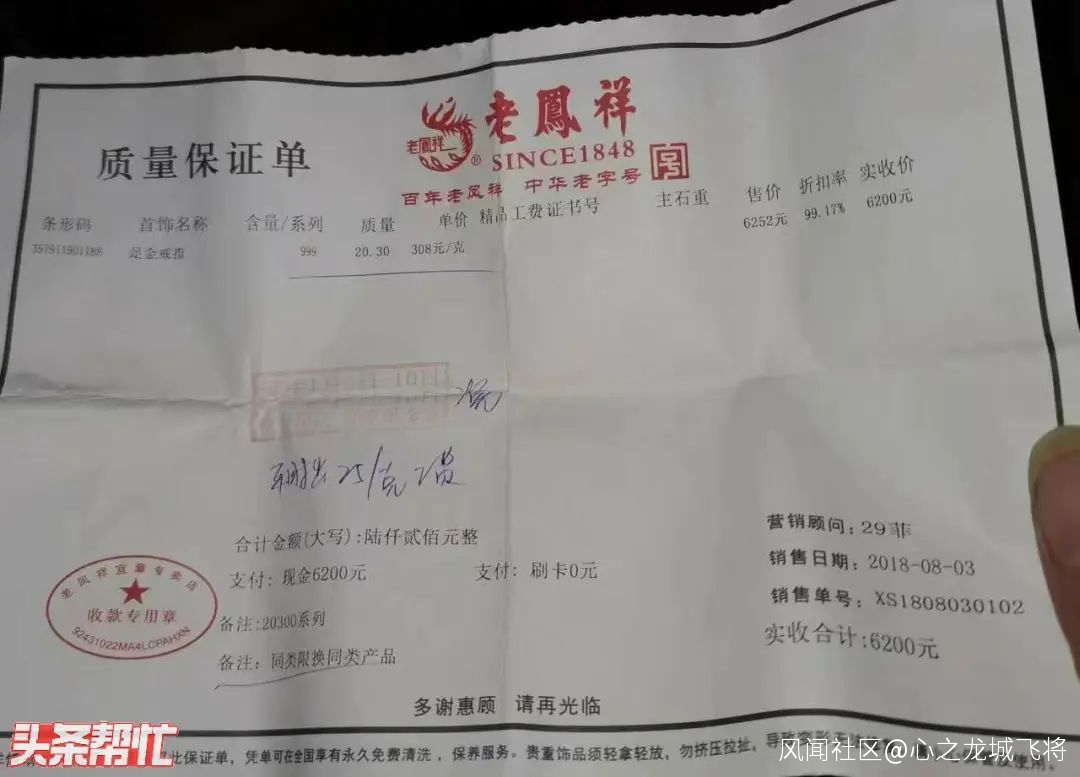 老鳳祥
老鳳祥
®
SINCE1848
质量保证单
百年老凤祥 中华老字号
条形码 首饰名称 含量/系列 质量 单价 精品工费 证书号 主石重 售价 折扣率 实收价
足金戒指 999 20.30 308元/克 6252元 99.17% 6200元
25/克
合计金额(大写):陆仟贰佰元整
支付: 现金6200元 支付: 刷卡0元
备注:20300系列
备注: 同类限换同类产品
老凤祥宜章专卖店
收款专用章
92431022MA4LCPAHXN
营销顾问: 29菲
销售日期: 2018-08-03
销售单号: XS1808030102
实收合计:6200元
多谢惠顾 请再光临
比保证单, 凭单可在全国享有永久免费清洗, 保养服务。贵重饰品须轻拿轻放, 勿挤压拉扯。
头条帮忙
风闻社区@心之龙城飞将